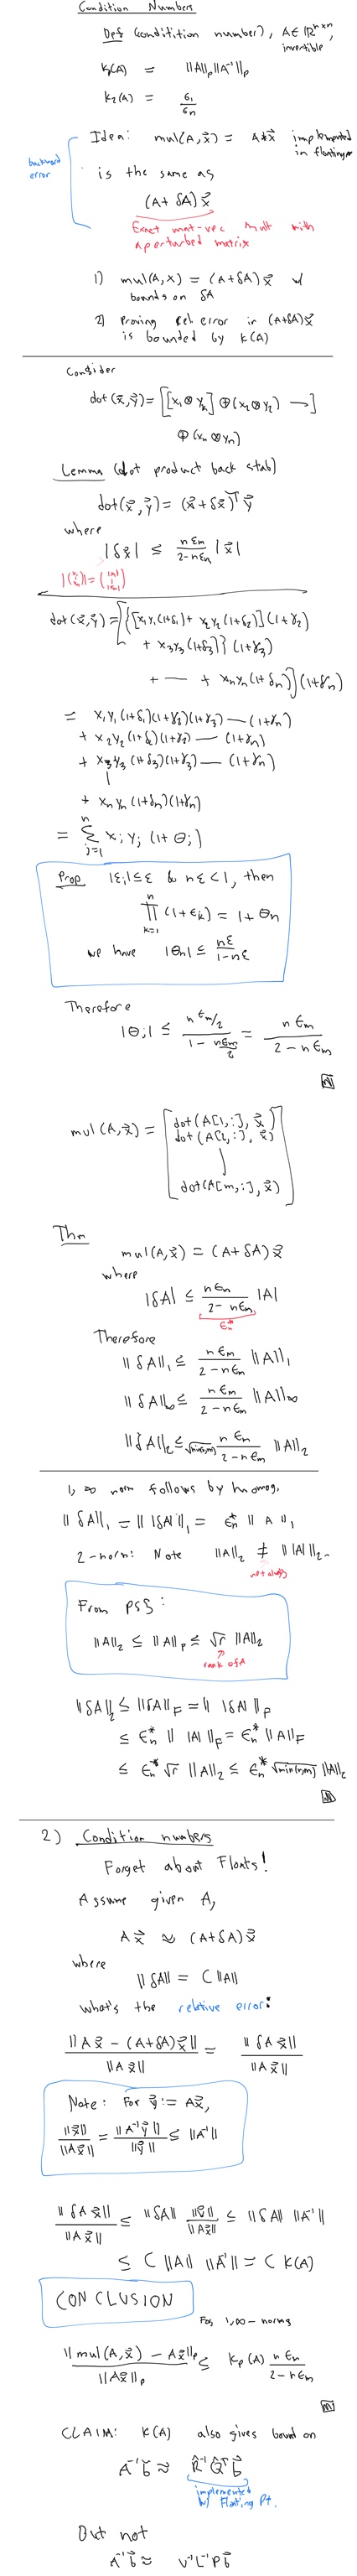 Condition Numbers
Def (condition number), A ∈ ℝ^{n×n}, invertible
κ_p(A) = ‖A‖_p ‖A⁻¹‖_p
κ₂(A) = σ₁/σ_n
Idea: mul(A, x⃗) = A*x⃗ implemented in floating
backward error
is the same as
(A + δA) x⃗
Exact mat-vec mult with a perturbed matrix
1) mul(A, x) = (A+δA) x⃗ w/ bounds on δA
2) Proving rel. error in (A+δA)x⃗ is bounded by κ(A)
Consider
dot(x⃗, y⃗) = [[x₁ ⊗ y₁] ⊕ (x₂ ⊗ y₂) —]
⊕ (x_n ⊗ y_n)
Lemma (dot product back stab)
dot(x⃗, y⃗) = (x⃗ + δx⃗)^T y⃗
where
|δx⃗| ≤ nε_m/(2-nε_m) |x⃗|
dot(x⃗, y⃗) = [{[x₁y₁(1+δ₁) + x₂y₂(1+δ₂)](1+γ₂)
+ x₃y₃(1+δ₃)}(1+γ₃)
+ — + x_n y_n(1+δ_n)](1+γ_n)
= x₁y₁(1+δ₁)(1+γ₂)(1+γ₃) — (1+γ_n)
+ x₂y₂(1+δ₂)(1+γ₂) — (1+γ_n)
+ x₃y₃(1+δ₃)(1+γ₃) — (1+γ_n)
+ x_n y_n(1+δ_n)(1+γ_n)
= Σ_{j=1}^n x_j y_j (1+θ_j)
Prop |ε_i| ≤ ε & nε < 1, then
∏_{k=1}^n (1+ε_k) = 1 + θ_n
we have |θ_n| ≤ nε/(1-nε)
Therefore
|θ_j| ≤ (n ε_m/2)/(1 - nε_m/2) = n ε_m/(2 - nε_m)
mul(A, x⃗) = [dot(A[1,:], x⃗)
dot(A[2,:], x⃗)
dot(A[m,:], x⃗)]
Thm
mul(A, x⃗) = (A+δA) x⃗
where
|δA| ≤ nε_m/(2-nε_m) |A|
ε_n^*
Therefore
‖δA‖₁ ≤ nε_m/(2-nε_m) ‖A‖₁
‖δA‖_∞ ≤ nε_m/(2-nε_m) ‖A‖_∞
‖δA‖₂ ≤ √min(m,n) nε_m/(2-nε_m) ‖A‖₂
1, ∞ norm follows by homog.
‖δA‖₁ = ‖|δA|‖₁ = ε_n^* ‖A‖₁
2-norm: Note ‖A‖₂ ≠ ‖|A|‖₂
not always
From PS5:
‖A‖₂ ≤ ‖A‖_F ≤ √r ‖A‖₂
rank of A
‖δA‖₂ ≤ ‖δA‖_F = ‖|δA|‖_F
≤ ε_n^* ‖|A|‖_F = ε_n^* ‖A‖_F
≤ ε_n^* √r ‖A‖₂ ≤ ε_n^* √min(m,n) ‖A‖₂
2) Condition numbers
Forget about Floats!
Assume given A,
A x⃗ ≈ (A+δA) x⃗
where
‖δA‖ = C‖A‖
what's the relative error:
‖A x⃗ - (A+δA)x⃗‖/‖A x⃗‖ = ‖δA x⃗‖/‖A x⃗‖
Note: For y⃗ := Ax⃗,
‖x⃗‖/‖Ax⃗‖ = ‖A⁻¹ y⃗‖/‖y⃗‖ ≤ ‖A⁻¹‖
‖δA x⃗‖/‖A x⃗‖ ≤ ‖δA‖ ‖x⃗‖/‖Ax⃗‖ ≤ ‖δA‖ ‖A⁻¹‖
≤ C ‖A‖ ‖A⁻¹‖ = C κ(A)
CONCLUSION
For 1,∞-norms
‖mul(A, x⃗) - Ax⃗‖_p/‖Ax⃗‖_p ≤ κ_p(A) nε_m/(2-nε_m)
CLAIM: κ(A) also gives bound on
A⁻¹ b⃗ ≈ R̂⁻¹ Q̂^T b⃗
implemented w/ Floating Pt.
But not
A⁻¹ b⃗ ≈ U⁻¹ L⁻¹ P b⃗